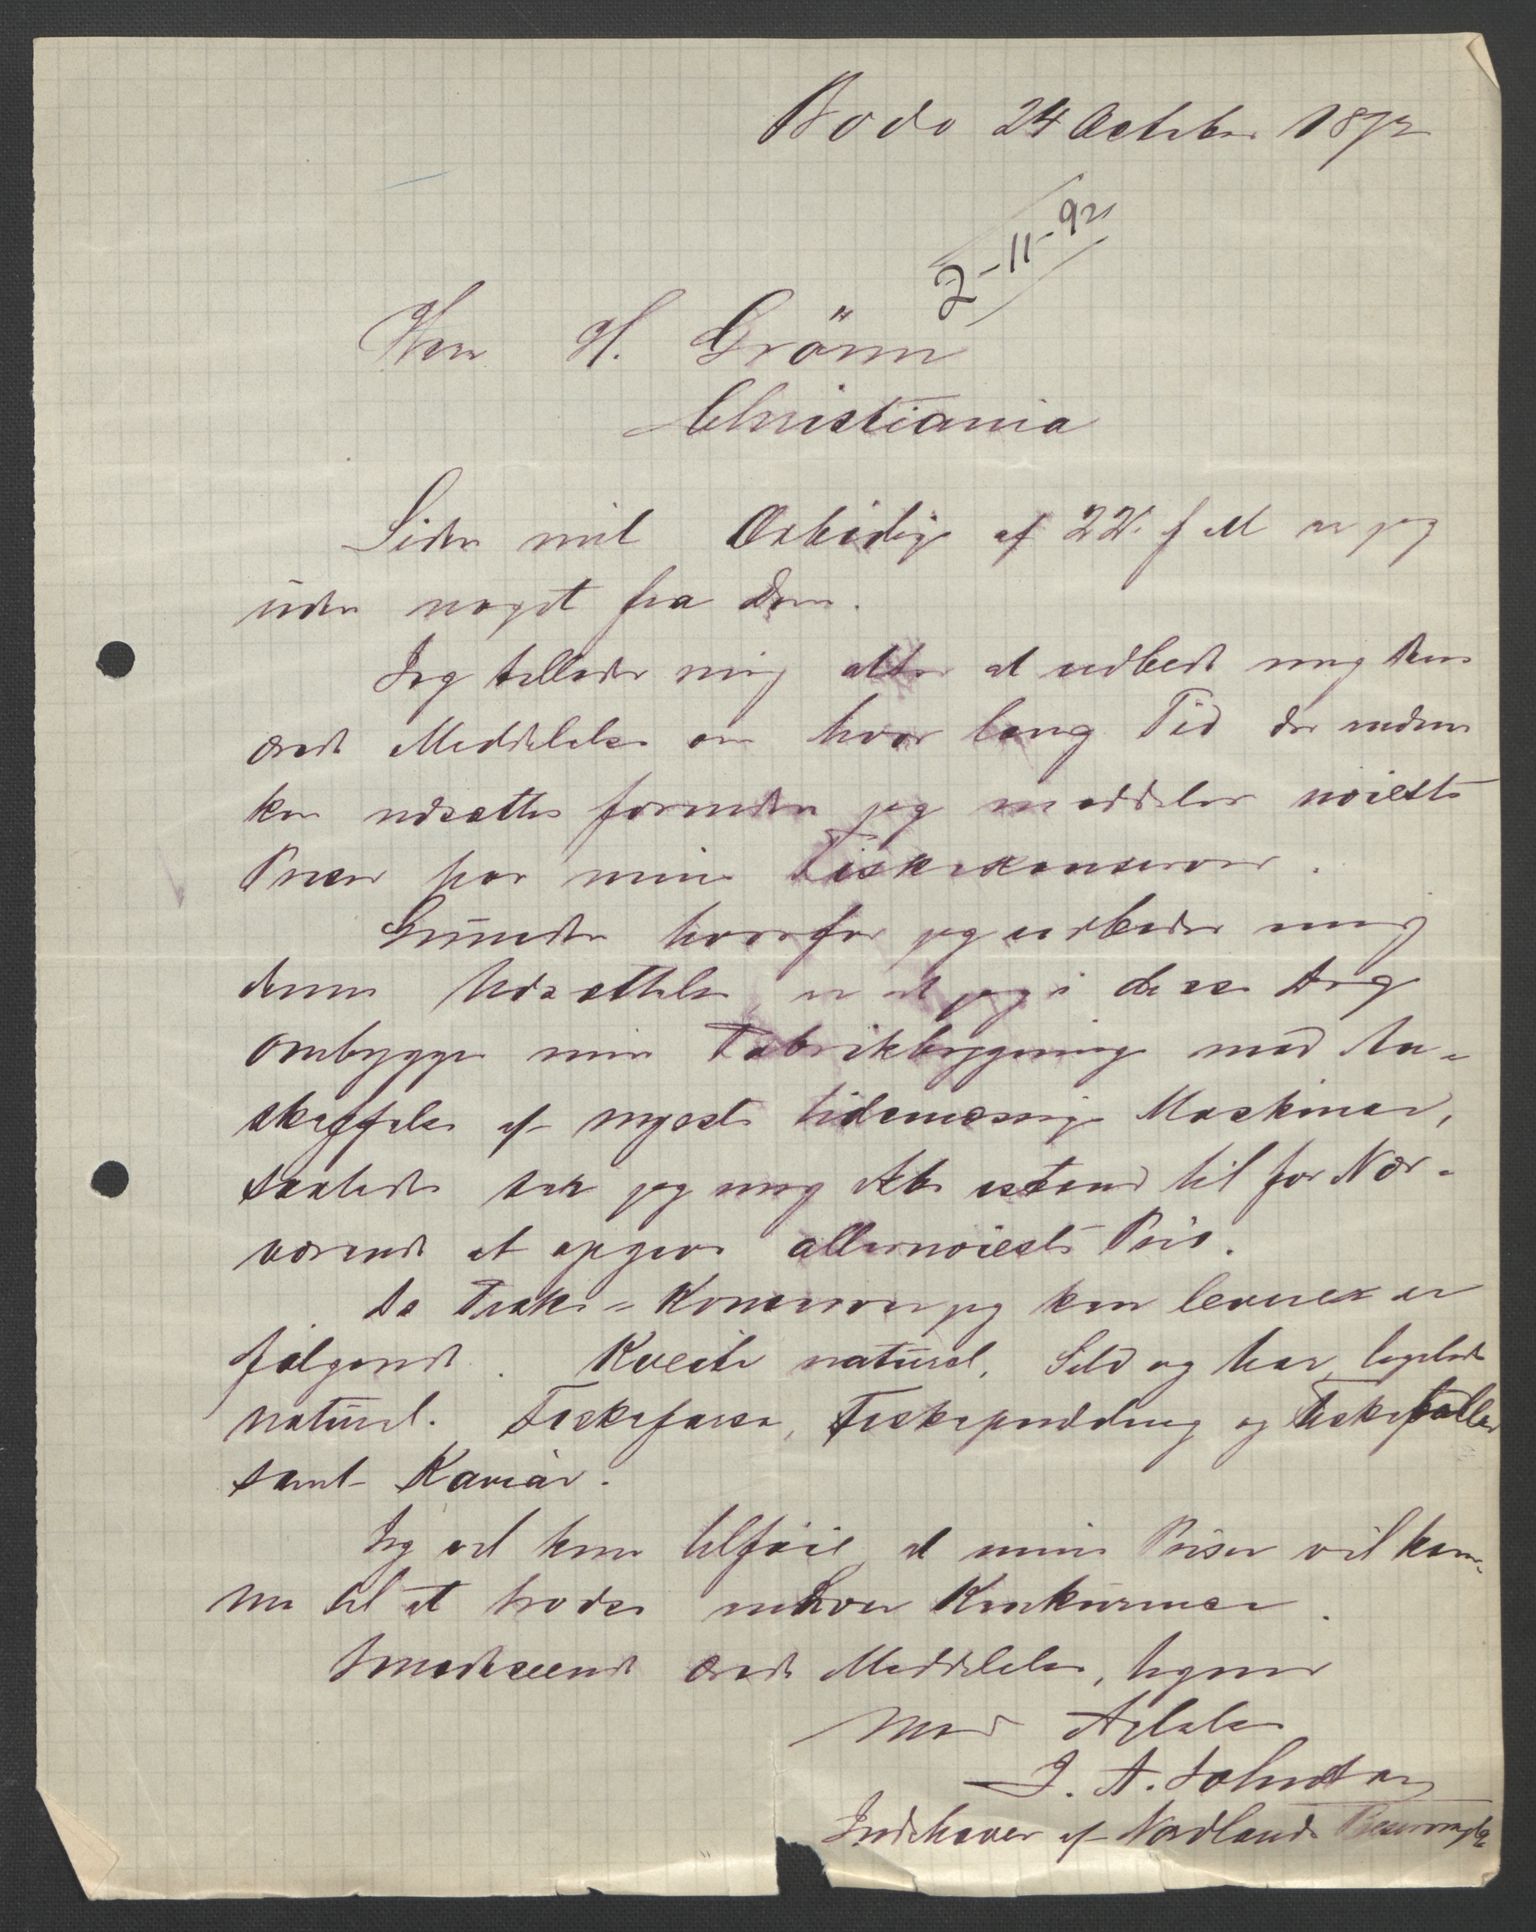 Bodø 24 October 1892
2-11-92
Herr H. Grönn
Christiania
Siden mit Ærbødige af 22. f M er jeg
uden noget fra Dem.
Jeg tillader mig atter at udbede mig Deres
ærede Meddelelse om hvor lang Tid der endnu
kan udsættes forinden jeg meddeler nøieste
Priser for mine Fiskekonserver.
Grunden hvorfor jeg udbeder mig
denne Udsættelse er at jeg i disse Dage
ombygger min Fabrikbygning med An-
skaffelse af nyeste tidsmæssige Maskiner,
saaledes ser jeg mig ikke istand til for Nær-
værende at opgive allernøieste Pris.
De Fiske-Konserver jeg kan levere er
følgende. Kveite naturel, Sild og ligeledes
naturel. Fiskefarse, Fiskepudding og Fiskeboller
samt Kaviar.
Jeg vil kun tilføie at mine Priser vil kom-
me til at trodse enhver Konkurrence.
Imødeseende ærede Meddelelse, tegner
med Agtelse
J. A.
Indehaver af Nordlands